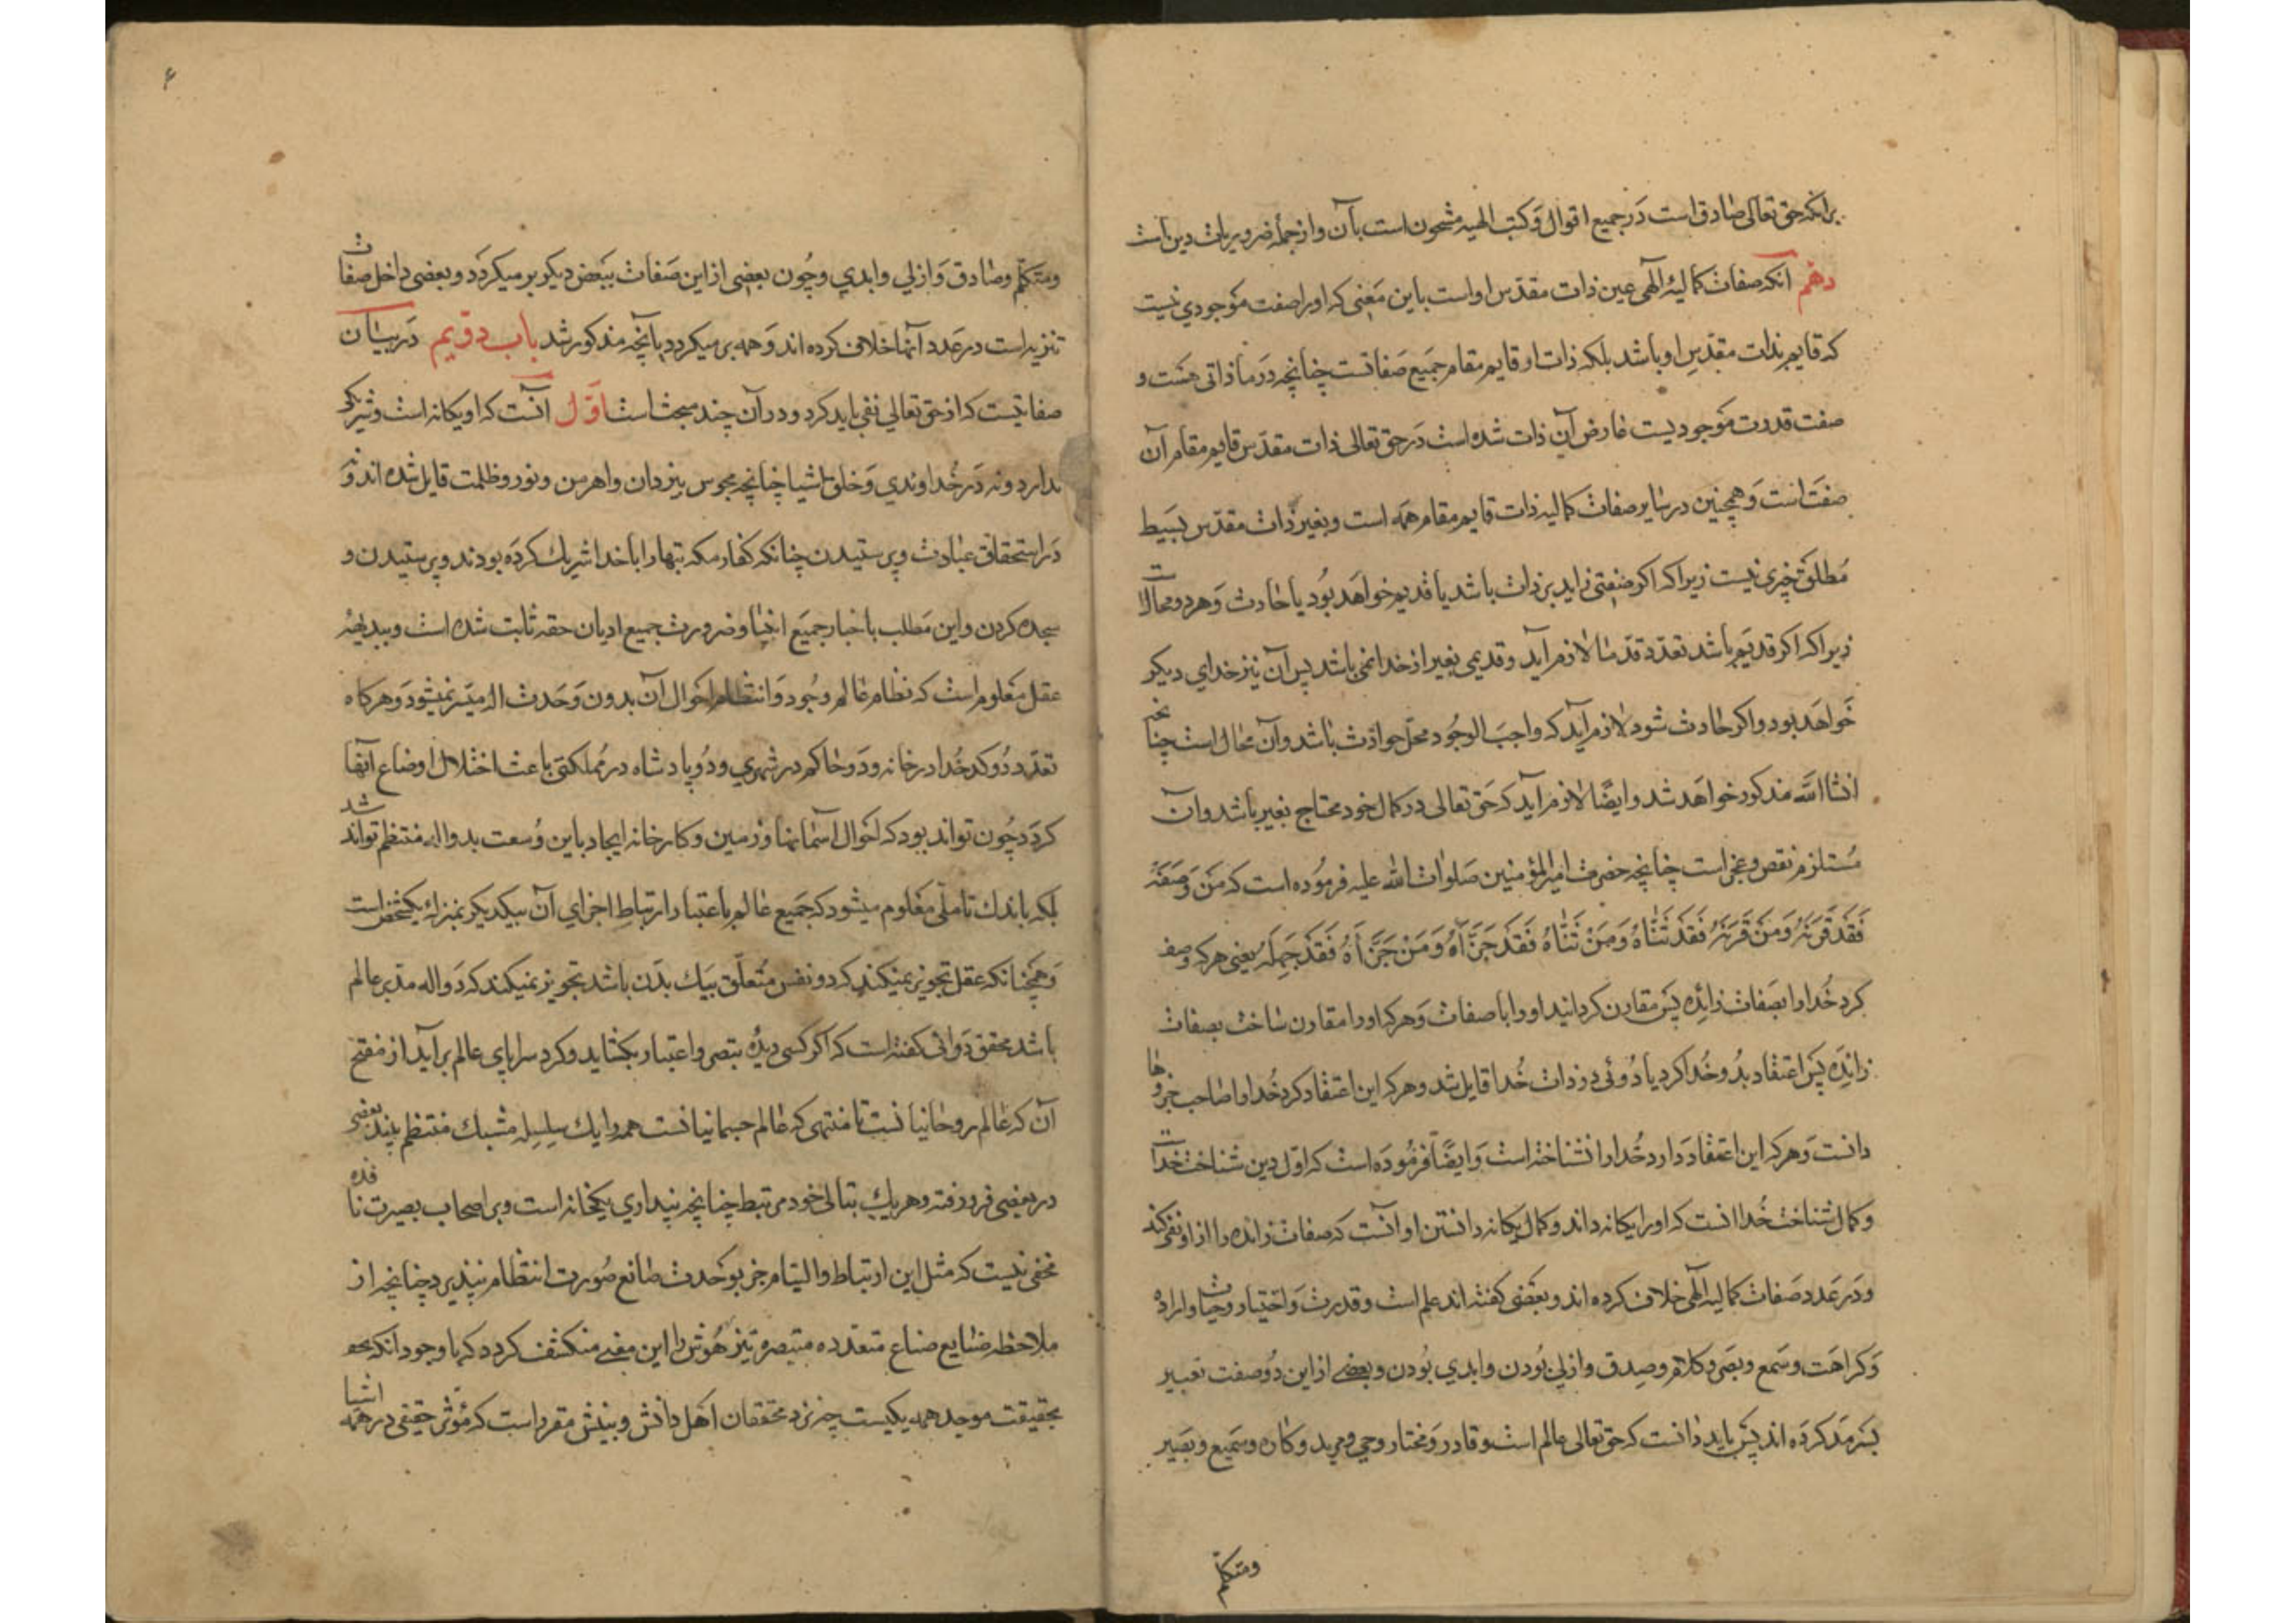 برانکه حق تعالی صادق است در جمیع اقوال و کتب الهیه مشحون است بآن و از جمله ضروریات دین است
دهم آنکه صفات کمالیه الهی عین ذات مقدس اواست باین معنی که او را صفت موجودی نیست
که قایم بذات مقدس او باشد بلکه ذات او قایم مقام جمیع صفاتست چنانچه در ما ذاتی هست و
صفت قدرت موجودیست عارض آن ذات شده است در حق تعالی ذات مقدس قایم مقام آن
صفتست و همچنین در سایر صفات کمالیه ذات قایم مقام همه است و بغیر ذات مقدس بسیط
مطلق چیزی نیست زیرا که اکر صفتی زاید بر ذات باشد یا قدیم خواهد بود یا حادث و هر دو محالست
زیرا که اکر قدیم باشد تعدد قدما لازم آید و قدیمی بغیر از خدا نمی باشد پس آن نیز خدای دیکر
خواهد بود و اکر حادث شود لازم آید که واجب الوجود محل حوادث باشد و آن محال است چنانچه
انشاالله مذکور خواهد شد و ایضا لازم آید که حق تعالی در کمال خود محتاج بغیر باشد و آن
مستلزم نقص و عجز است چنانچه حضرت امیرالمؤمنین صلوات الله علیه فرموده است که من وصفه
فقد قرنه ومن قرنه فقد ثناه ومن ثناه فقد جزاه ومن جزاه فقد جهله یعنی هر که وصف
کرد خدا را بصفات زائده پس مقارن کردانید او را با صفات و هر که او را مقارن ساخت بصفات
زائده پس اعتقاد بدو خدا کرد یا دوئی در ذات خدا قایل شد و هر که این اعتقاد کرد خدا را صاحب جزوها
دانست و هر که این اعتقاد دارد خدا را نشناخته است و ایضا فرموده است که اول دین شناخت خداست
و کمال شناخت خدا انست که او را یکانه داند و کمال یکانه دانستن او آنست که صفات زائده را از او نفی کند
و در عدد صفات کمالیه الهی خلاف کرده اند و بعضی کفته اند علم است و قدرت و اختیار و حیات و اراده
و کراهت و سمع و بصر و کلام و صدق و ازلی بودن و ابدی بودن و بعضی از این دو صفت تعبیر
بسرمد کرده اند پس باید دانست که حق تعالی عالم است و قادر و مختار و حی و مرید و کاره و سمیع و بصیر
ومتکلم
۶
ومتکلم و صادق و ازلی و ابدی و چون بعضی از این صفات ببعض دیکر بر میکردد و بعضی داخل صفات
تنزیه است در عدد آنها خلاف کرده اند و همه بر میکردد بآنچه مذکور شد باب دویم در بیان
صفاتیست که از حق تعالی نفی باید کرد و در آن چند مبحث است اول آنست که او یکانه است و شریکی
ندارد و نه در خداوندی و خلق اشیا چنانچه مجوس بیزدان و اهرمن و نور و ظلمت قایل شده اند و نه
در استحقاق عبادت و پرستیدن چنانکه کفار مکه بتها را با خدا شریک کرده بودند و پرستیدن و
سجده کردن و این مطلب باخبار جمیع انبیا و ضرورت جمیع ادیان حقه ثابت شده است و ببدیهه
عقل معلوم است که نظام عالم وجود و انتظام احوال آن بدون وحدت اله میسر نمیشود و هر کاه
تعدد دو کدخدا در خانه و دو حاکم در شهری و دو پادشاه در مملکتی باعث اختلال اوضاع آنها
کردد چون تواند بود که احوال آسمانها و زمین و کارخانه ایجاد باین وسعت بدو اله منتظم تواند شد
بلکه باندک تاملی معلوم میشود که جمیع عالم باعتبار ارتباط اجزای آن بیکدیکر بمنزله یکشخص است
و همچنانکه عقل تجویز نمیکند که دو نفس متعلق بیک بدن باشد تجویز نمیکند که دو اله مدبر عالم
باشد محقق دوانی کفته است که اکر کسی دیده تبصر و اعتبار بکشاید و کرد سراپای عالم برآید از مفتح
آن که عالم روحانیانست تا منتهی که عالم جسمانیانست همه را یک سلسله مشبک منتظم بیند بعضی
در بعضی فرو رفته و هر یک بتالی خود مرتبط چنانچه پنداری یکخانه است و بر اصحاب بصیرت نافذه
مخفی نیست که مثل این ارتباط و التیام جز بوحدت صانع صورت انتظام نپذیرد چنانچه از
ملاحظه صنایع صناع متعدده متبصره تیز هوش را این معنی منکشف کردد که با وجود انکه بحو
بحقیقت موجد همه یکیست چه نزد محققان اهل دانش و بینش مقرر است که مؤثر حقیقی در همه اشیا